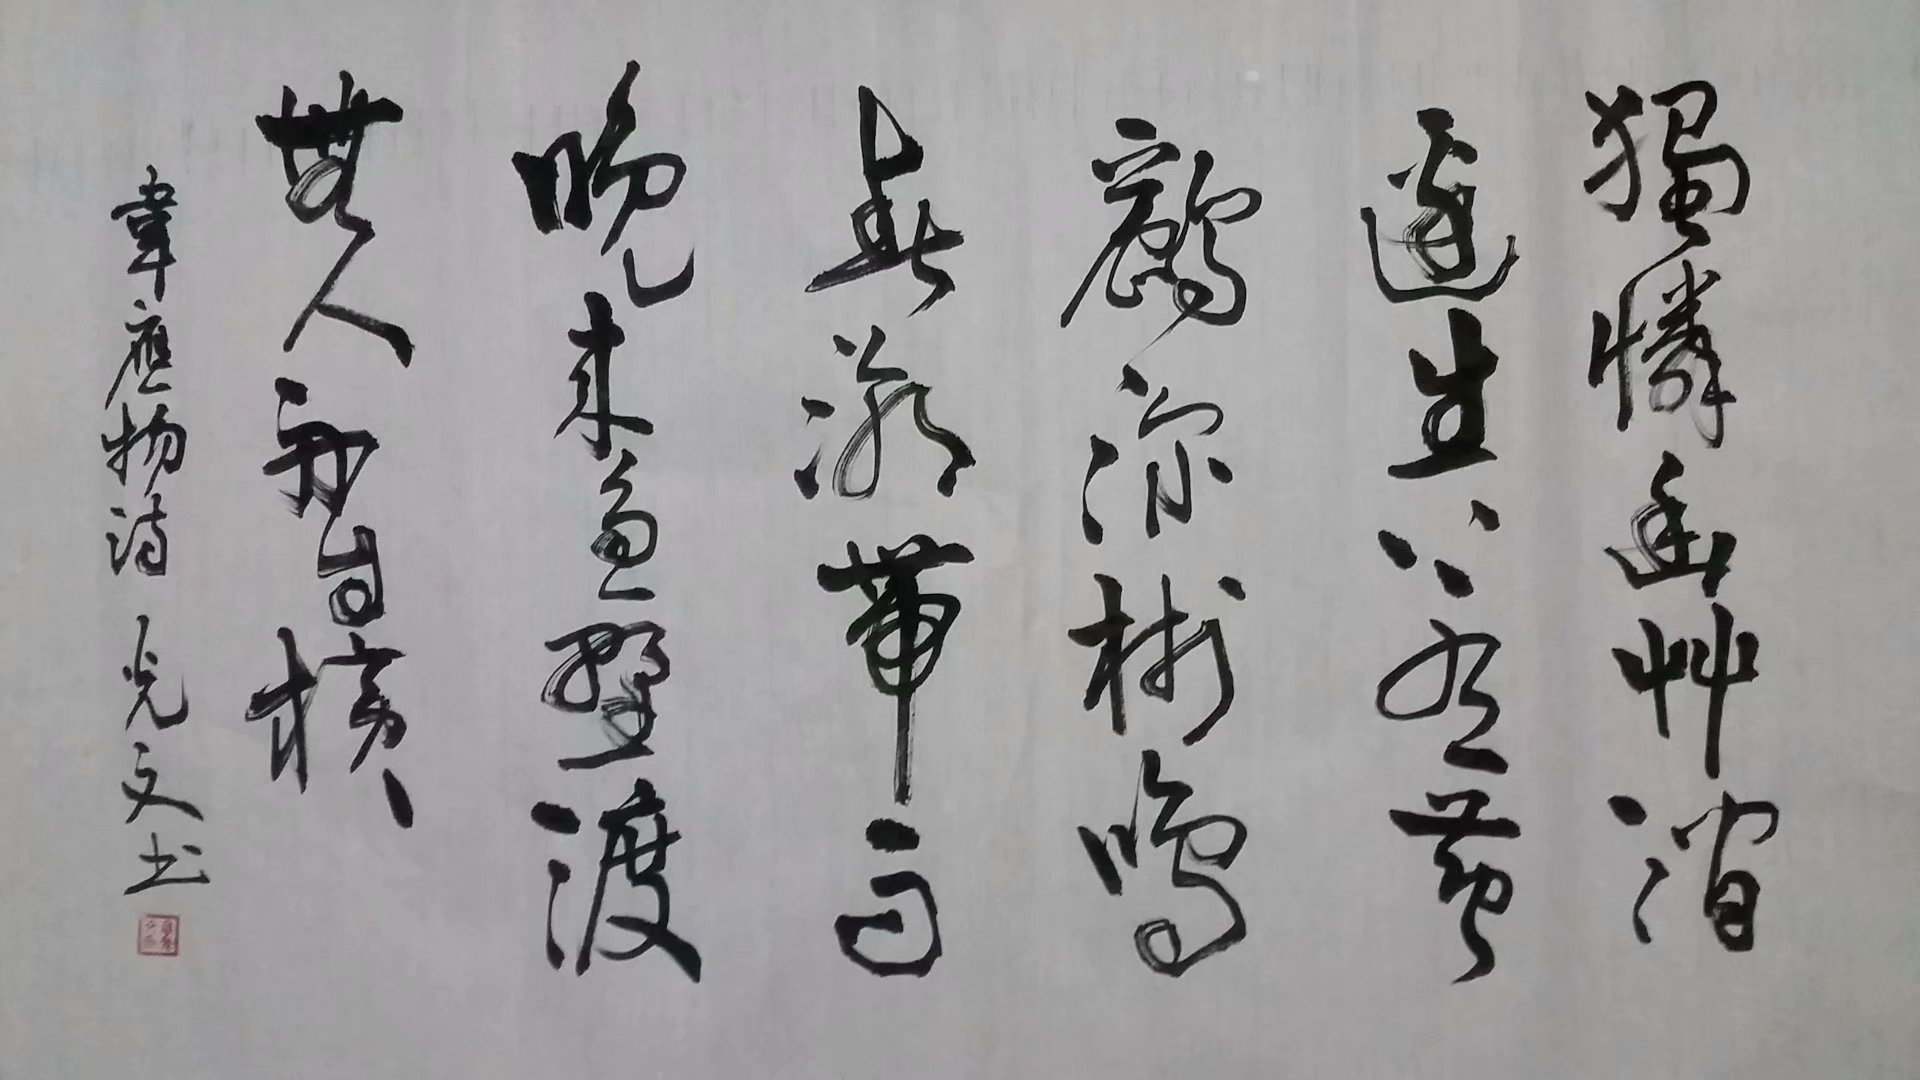 獨憐幽艸澗
邊生上有黃
鸝深樹鳴
春潮帶雨
晚來急野渡
無人舟自橫
韋應物詩 光文书